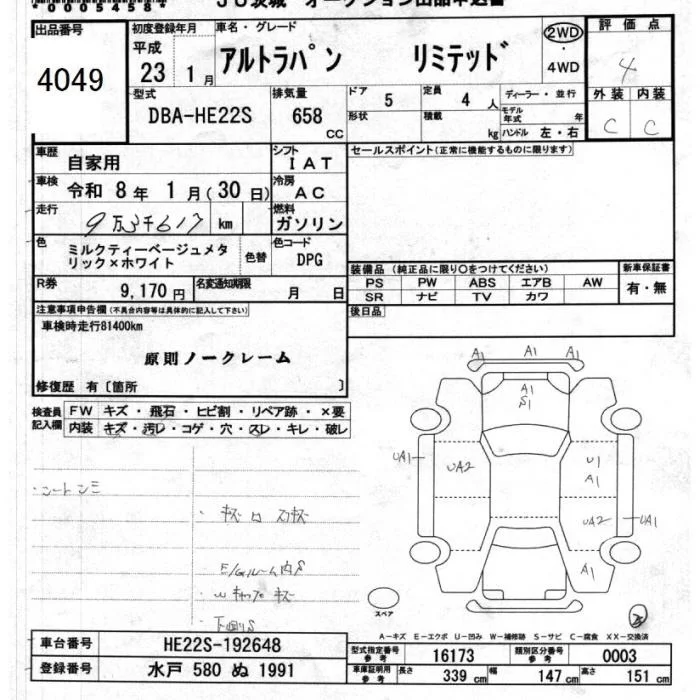 *00054584*
JU茨城 オークション出品申込書
出品番号
4049
初度登録年月
平成
23 1月
車名・グレード
アルトラパン リミテッド
2WD
・
4WD
評価点
4
外装 内装
C C
型式
DBA-HE22S
排気量
658
CC
ドア
5
形状
定員
4 人
積載
kg
ディーラー・並行
モデル
年式 年
ハンドル 左・右
車歴
自家用
シフト
IAT
車検
令和 8年 1月(30日)
冷房
AC
走行
9万3千617 km
燃料
ガソリン
色
ミルクティーベージュメタ
リック×ホワイト
色替
色コード
DPG
R券
9,170円
名変通知期限
月 日
セールスポイント(正常に機能するものに限ります)
装備品(純正品に限り○をつけてください)
PS PW ABS エアB AW
SR ナビ TV カワ
新車保証書
有・無
後日品
注意事項申告欄(不具合内容等は具体的に記入して下さい)
車検時走行81400km
原則ノークレーム
修復歴 有〔箇所 〕
検査員
記入欄
FW キズ・飛石・ヒビ割・リペア跡・×要
内装 キズ・汚レ・コゲ・穴・スレ・キレ・破レ
・シートシミ
・キズ
E/Gルーム内S
キズ
・下回りS
A1 A1 A1
A1
S1
UA1
UA2
U1
A1
UA2
UA1
A1
スペア
A-キズ E-エクボ U-凹み W-補修跡 S-サビ C-腐食 XX-交換済
車台番号
HE22S-192648
登録番号
水戸 580 ぬ 1991
型式指定番号
参考
16173
類別区分番号
参考
0003
車庫証明用
参考
長さ
339 cm
幅
147 cm
高さ
151 cm